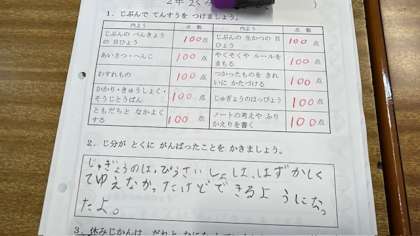 2年25
1. じぶんで てんすうを つけましょう。
内よう 点数 内よう 点数
じぶんの べんきょうの 目ひょう 100点 じぶんの 生かつの 目ひょう 100点
あいさつ・へんじ 100点 やくそくや ルールを まもる 100点
わすれもの 100点 つかったものを きれいに かたづける 100点
かかり・きゅうしょく・そうじとうばん 100点 じゅぎょうのはっぴょう 100点
ともだちと なかよくする 100点 ノートの考えや ふりかえりを書く 100点
2. じ分が とくに がんばったことを かきましょう。
じゅぎょうのは,ぴょうさい しょは,はずかしく
てゆえなか,たけどできるようになっ
たよ。
3. 休みじかんは、だれと